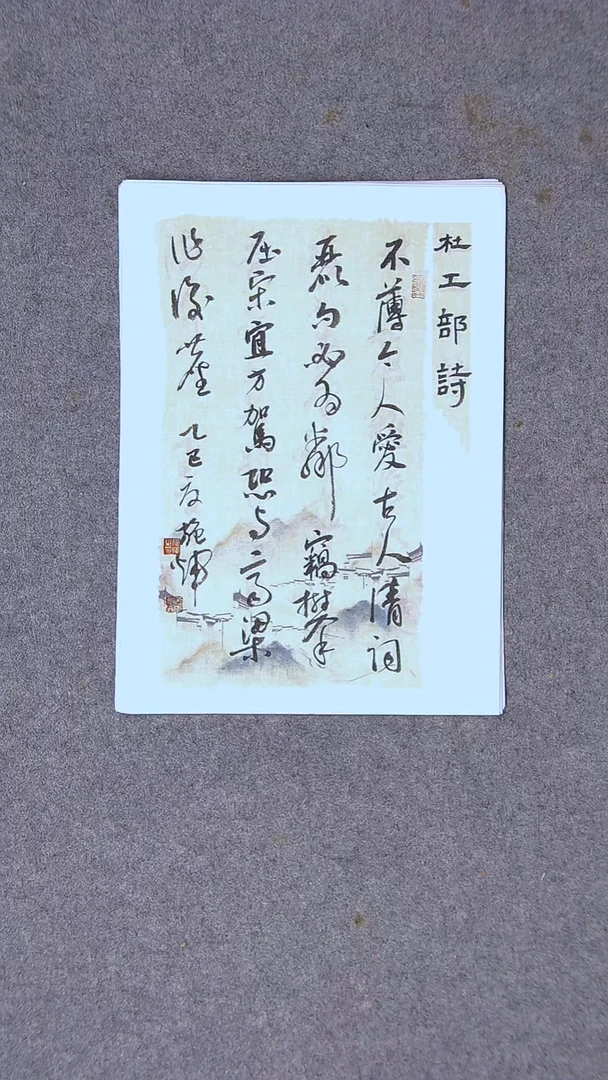 杜工部詩
不薄今人愛古人清詞
麗句必為鄰竊攀
屈宋宜方駕恐與齊梁
作後塵 乙巳夏施